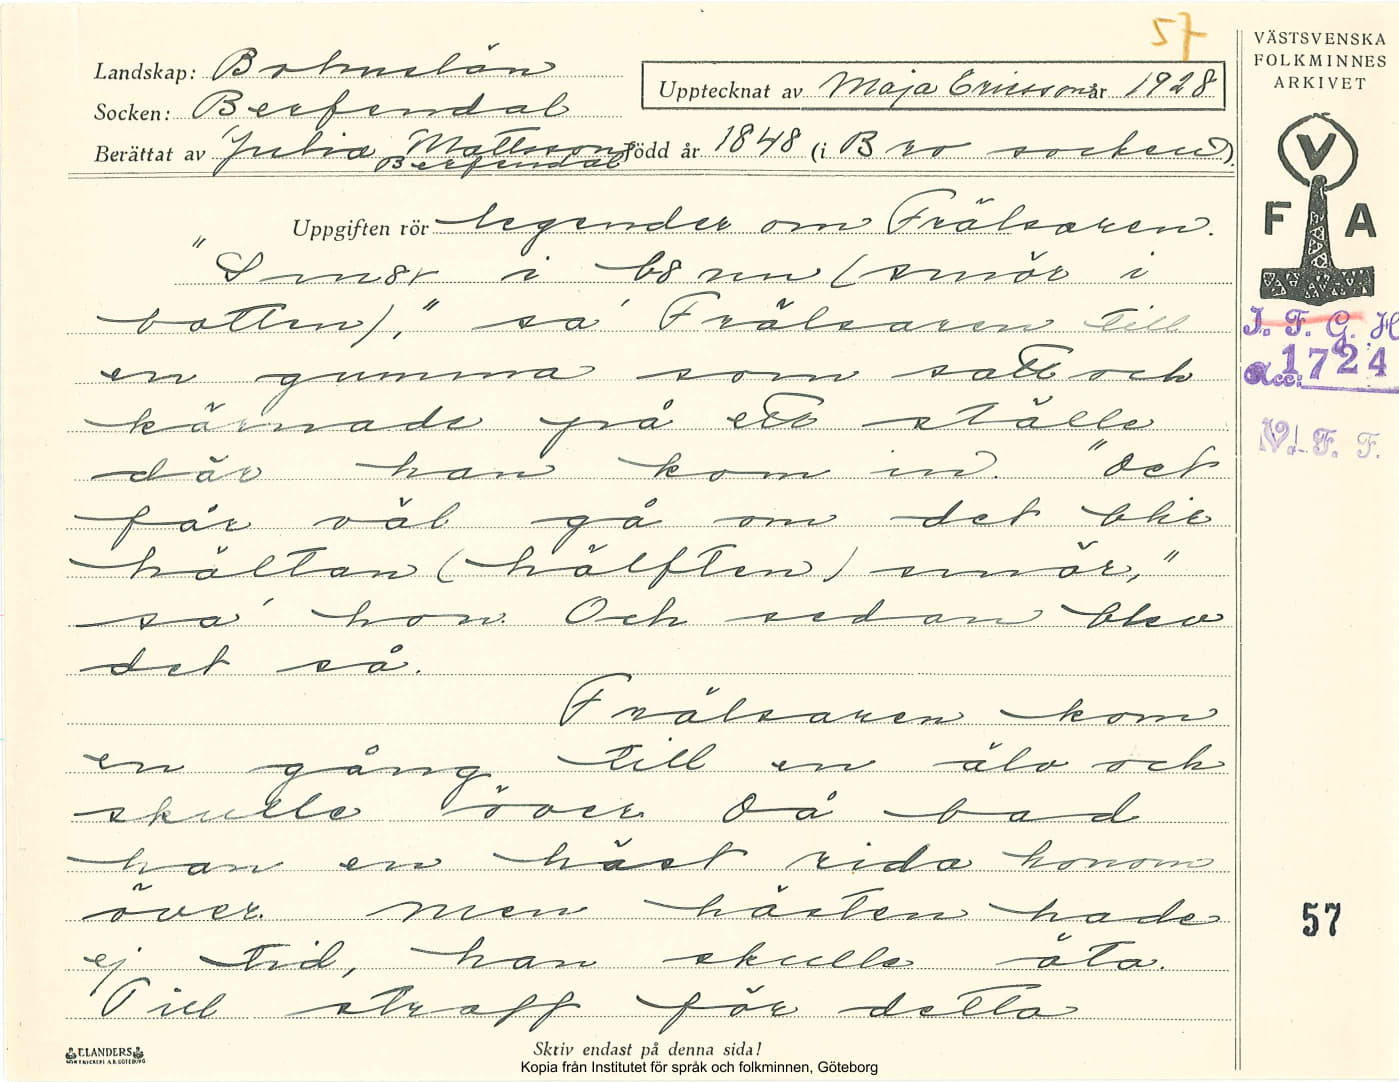 57
Landskap: Bohuslän
Socken: Berfendal
Upptecknat av Maja Ericsson år 1928
Berättat av Julia Mattsson född år 1848 (i Bro socken).
Berfendal
Uppgiften rör legender om Frälsaren.
"Smör i bönn (smör i
botten)," sa' Frälsaren till
en gumma som satt och
kärnade på ett ställe
där han kom in. "Det
får väl gå om det blir
hältan (hälften) smör,"
sa' hon. Och sedan blev
det så.
Frälsaren kom
en gång till en älv och
skulle över. Då bad
han en häst rida honom
över. Men hästen hade
ej tid, han skulle äta.
Till straff för detta
Skriv endast på denna sida!
ELANDERS
BOKTRYCKERI A.B. GÖTEBORG
Kopia från Institutet för språk och folkminnen, Göteborg
VÄSTSVENSKA
FOLKMINNES
ARKIVET
V
F A
I. F. G. H
Acc: 1724
V. F. F.
57